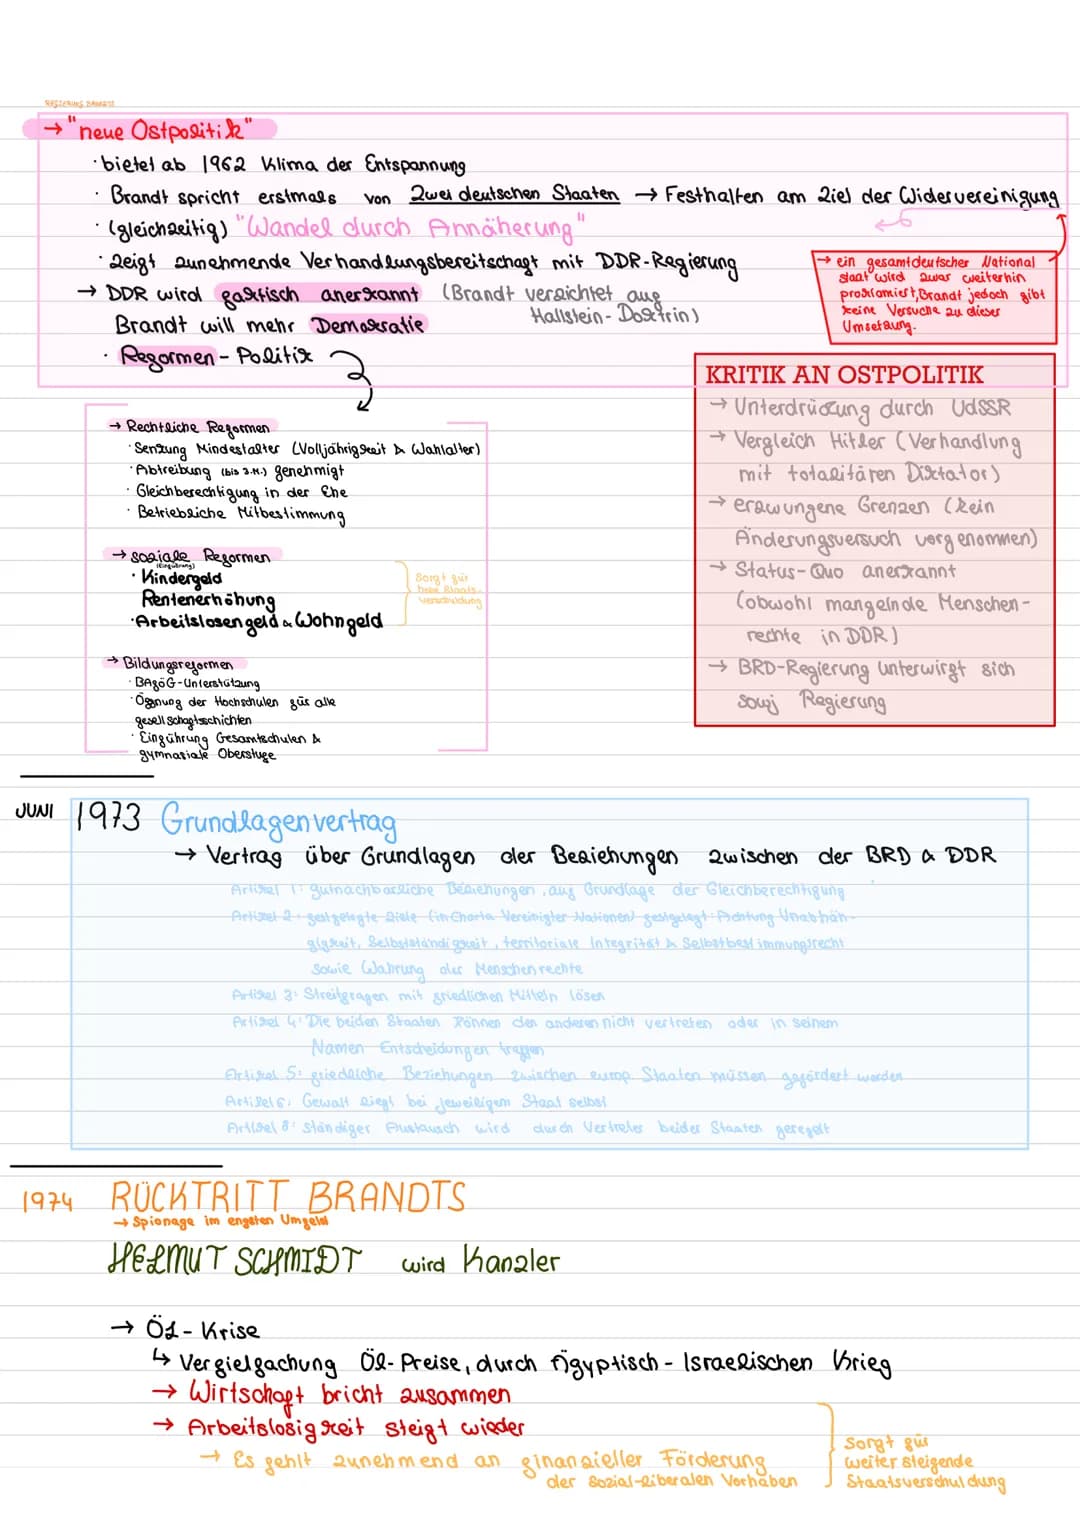 REGIERUNG BRANDTS
→ "neue Ostpolitik"
· bietet ab 1962 Klima der Entspannung
· Brandt spricht erstmals von zwei deutschen Staaten → Festhalten am Ziel der Widervereinigung
· (gleichzeitig) "Wandel durch Annäherung"
· zeigt zunehmende Verhandlungsbereitschaft mit DDR-Regierung
→ DDR wird faktisch anerkannt (Brandt verzichtet auf
Hallstein-Doktrin)
Brandt will mehr Demokratie
· Reformen-Politik
→ ein gesamtdeutscher National
staat wird zwar weiterhin
proklamiert, Brandt jedoch gibt
keine Versuche zu dieser
Umsetzung.
→ Rechtliche Reformen
· Senkung Mindestalter (Volljährigkeit & Wahlalter)
· Abtreibung (bis 3.M.) genehmigt
· Gleichberechtigung in der Ehe
· Betriebliche Mitbestimmung
→ soziale Reformen
(Einführung)
· Kindergeld
Rentenerhöhung
· Arbeitslosengeld & Wohngeld
Sorgt für
hohe Staats-
verschuldung
→ Bildungsreformen
· BAföG-Unterstützung
· Öffnung der Hochschulen für alle
gesellschaftsschichten
· Einführung Gesamtschulen &
gymnasiale Oberstufe
KRITIK AN OSTPOLITIK
→ Unterdrückung durch UdSSR
→ Vergleich Hitler (Verhandlung
mit totalitären Diktator)
→ erzwungene Grenzen (kein
Änderungsversuch vorgenommen)
→ Status-Quo anerkannt
(obwohl mangelnde Menschen-
rechte in DDR)
→ BRD-Regierung unterwirft sich
sowj Regierung
JUNI 1973 Grundlagenvertrag
→ Vertrag über Grundlagen der Beziehungen zwischen der BRD & DDR
Artikel 1: gutnachbarliche Beziehungen, auf Grundlage der Gleichberechtigung
Artikel 2: festgelegte Ziele (in Charta Vereinigter Nationen) festgelegt: Achtung Unabhän-
gigkeit, Selbstständigkeit, territoriale Integrität & Selbstbestimmungsrecht
sowie Wahrung der Menschenrechte
Artikel 3: Streitfragen mit friedlichen Mitteln lösen
Artikel 4: Die beiden Staaten können den anderen nicht vertreten oder in seinem
Namen Entscheidungen treffen
Artikel 5: friedliche Beziehungen zwischen europ. Staaten müssen gefördert werden
Artikel 6: Gewalt liegt bei jeweiligem Staat selbst
Artikel 8: ständiger Austausch wird durch Vertreter beider Staaten geregelt
1974 RÜCKTRITT BRANDTS
→ Spionage im engsten Umfeld
HELMUT SCHMIDT wird Kanzler
→ Öl-Krise
↳ Vergielfachung Öl-Preise, durch Ägyptisch-Israelischen Krieg
→ Wirtschaft bricht zusammen
→ Arbeitslosigkeit steigt wieder
→ Es fehlt zunehmend an finanzieller Förderung
der Sozial-liberalen Vorhaben
Sorgt für
weiter steigende
Staatsverschuldung